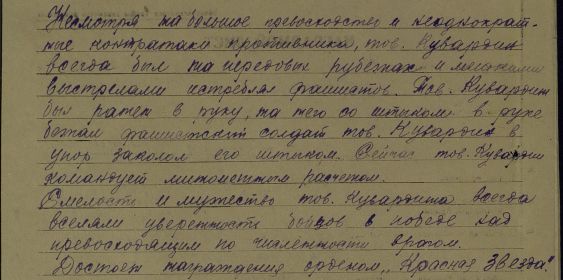 Несмотря на большое превосходство и неоднократ-
ные контратаки противника, тов. Кувардин
всегда был на передовых рубежах и меткими
выстрелами истреблял фашистов. Тов. Кувардин
был ранен в руку, на него со штыком в руке
бежал фашистский солдат тов. Кувардин в
упор заколол его штыком. Сейчас тов. Кувардин
командует минометным расчетом.
Смелость и мужество тов. Кувардина всегда
вселяли уверенность бойцов в победе над
превосходящим по численности врагом.
Достоин награждения орденом „Красная Звезда".